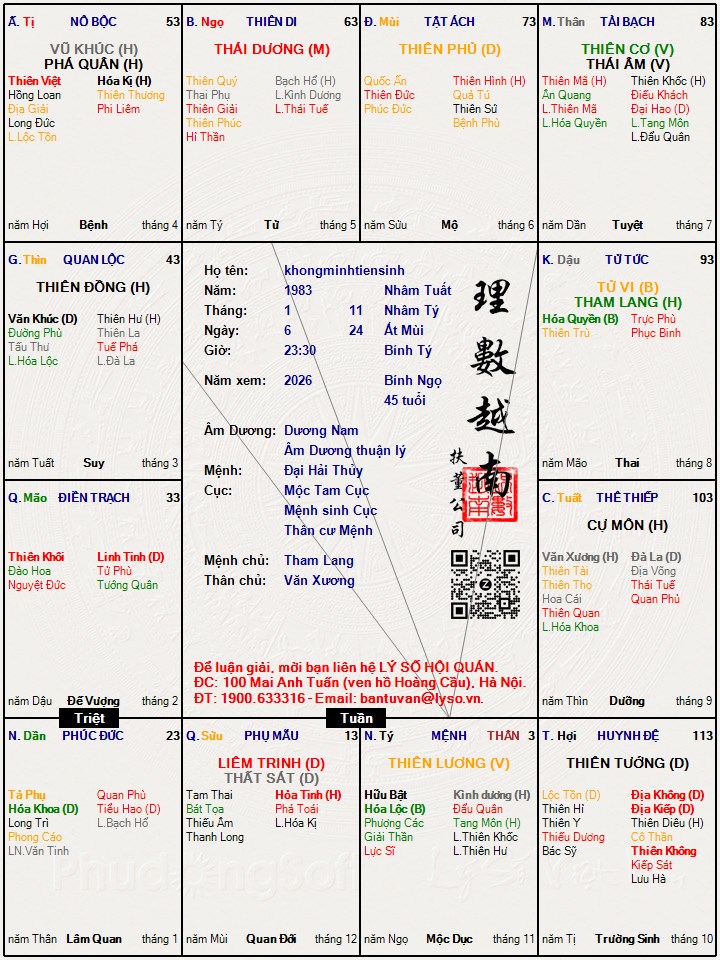 Ã. Tị NÔ BỘC 53
VŨ KHÚC (H)
PHÁ QUÂN (H)
Thiên Việt Hóa Kị (H)
Hồng Loan Thiên Thương
Địa Giải Phi Liêm
Long Đức
L.Lộc Tồn
năm Hợi Bệnh tháng 4
B. Ngọ THIÊN DI 63
THÁI DƯƠNG (M)
Thiên Quý Bạch Hổ (H)
Thai Phụ L.Kình Dương
Thiên Giải L.Thái Tuế
Thiên Phúc
Hỉ Thần
năm Tý Tử tháng 5
Đ. Mùi TẬT ÁCH 73
THIÊN PHỦ (D)
Quốc Ấn Thiên Hình (H)
Thiên Đức Quả Tú
Phúc Đức Thiên Sứ
Bệnh Phù
năm Sửu Mộ tháng 6
M. Thân TÀI BẠCH 83
THIÊN CƠ (V)
THÁI ÂM (V)
Thiên Mã (H) Thiên Khốc (H)
Ân Quang Điếu Khách
L.Thiên Mã Đại Hao (D)
L.Hóa Quyền L.Tang Môn
L.Đẩu Quân
năm Dần Tuyệt tháng 7
G. Thìn QUAN LỘC 43
THIÊN ĐỒNG (H)
Văn Khúc (D) Thiên Hư (H)
Đường Phù Thiên La
Tấu Thư Tuế Phá
L.Hóa Lộc L.Đà La
năm Tuất Suy tháng 3
Họ tên: khongminhtiensinh
Năm: 1983 Nhâm Tuất
Tháng: 1 11 Nhâm Tý
Ngày: 6 24 Ất Mùi
Giờ: 23:30 Bính Tý
Năm xem: 2026 Bính Ngọ
45 tuổi
Âm Dương: Dương Nam
Âm Dương thuận lý
Mệnh: Đại Hải Thủy
Cục: Mộc Tam Cục
Mệnh sinh Cục
Thân cư Mệnh
Mệnh chủ: Tham Lang
Thân chủ: Văn Xương
理數越南
扶董公司
Để luận giải, mời bạn liên hệ LÝ SỐ HỘI QUÁN.
ĐC: 100 Mai Anh Tuấn (ven hồ Hoàng Cầu), Hà Nội.
ĐT: 1900.633316 - Email: bantuvan@lyso.vn.
K. Dậu TỬ TỨC 93
TỬ VI (B)
THAM LANG (H)
Hóa Quyền (B) Trực Phù
Thiên Trù Phục Binh
năm Mão Thai tháng 8
Q. Mão ĐIỀN TRẠCH 33
Thiên Khôi Linh Tinh (D)
Đào Hoa Tử Phù
Nguyệt Đức Tướng Quân
năm Dậu Đế Vượng tháng 2
C. Tuất THÊ THIẾP 103
CỰ MÔN (H)
Văn Xương (H) Đà La (D)
Thiên Tài Địa Võng
Thiên Thọ Thái Tuế
Hoa Cái Quan Phủ
Thiên Quan
L.Hóa Khoa
năm Thìn Dưỡng tháng 9
Triệt
Tuần
N. Dần PHÚC ĐỨC 23
Tả Phụ Quan Phù
Hóa Khoa (D) Tiểu Hao (D)
Long Trì L.Bạch Hổ
Phong Cáo
LN.Văn Tinh
năm Thân Lâm Quan tháng 1
Q. Sửu PHỤ MẪU 13
LIÊM TRINH (D)
THẤT SÁT (D)
Tam Thai Hỏa Tinh (H)
Bát Tọa Phá Toái
Thiếu Âm L.Hóa Kị
Thanh Long
năm Mùi Quan Đới tháng 12
N. Tý MỆNH THÂN 3
THIÊN LƯƠNG (V)
Hữu Bật Kình dương (H)
Hóa Lộc (B) Đẩu Quân
Phượng Các Tang Môn (H)
Giải Thần L.Thiên Khốc
Lực Sĩ L.Thiên Hư
năm Ngọ Mộc Dục tháng 11
T. Hợi HUYNH ĐỆ 113
THIÊN TƯỚNG (D)
Lộc Tồn (D) Địa Không (D)
Thiên Hỉ Địa Kiếp (D)
Thiên Y Thiên Diêu (H)
Thiếu Dương Cô Thần
Bác Sỹ Thiên Không
Kiếp Sát
Lưu Hà
năm Tị Trường Sinh tháng 10